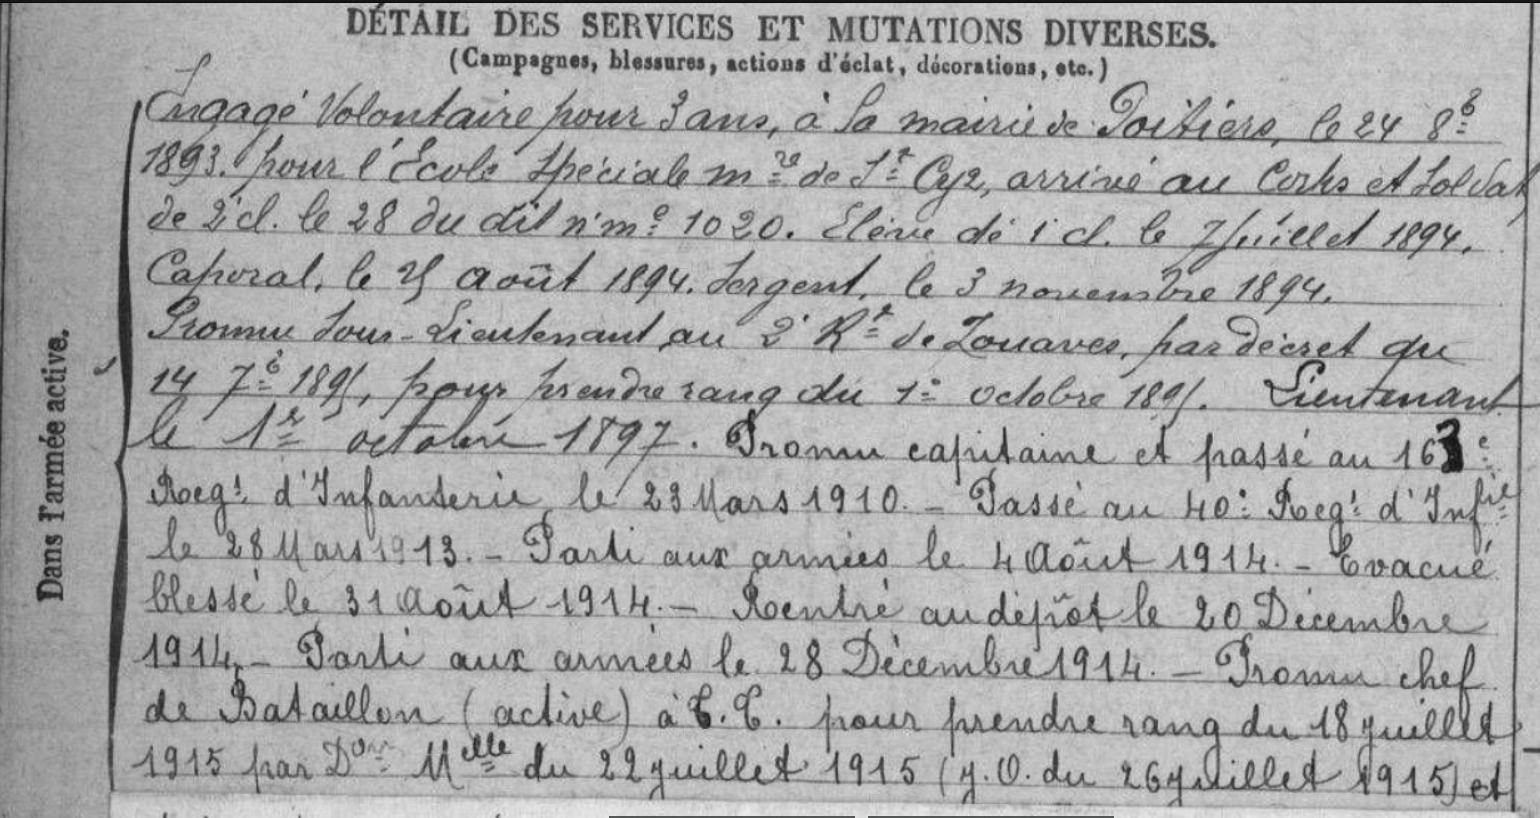 DÉTAIL DES SERVICES ET MUTATIONS DIVERSES.
(Campagnes, blessures, actions d'éclat, décorations, etc.)
Dans l'armée active.
Engagé Volontaire pour 3 ans, à la mairie de Poitiers, le 24 8bre
1893. pour l'École Spéciale mre de St Cyr, arrivé au Corps et Soldat
de 2e cl. le 28 du dit n° mle 1020. Élève de 1e cl. le 7 Juillet 1894.
Caporal, le 25 Août 1894. Sergent, le 3 novembre 1894.
Promu Sous-Lieutenant au 2e Rt de Zouaves, par décret du
14 7bre 1895, pour prendre rang du 1er octobre 1895. Lieutenant
le 1er octobre 1897. Promu capitaine et passé au 163e
Regt d'Infanterie le 23 Mars 1910. - Passé au 40e Regt d'Infie
le 28 Mars 1913. - Parti aux armées le 4 Août 1914. - Evacué
blessé le 31 Août 1914. - Rentré au dépôt le 20 Décembre
1914. - Parti aux armées le 28 Décembre 1914. - Promu chef
de Bataillon (active) à T.T. pour prendre rang du 18 juillet
1915 par Don Melle du 22 juillet 1915 (J.O. du 26 juillet 1915) et